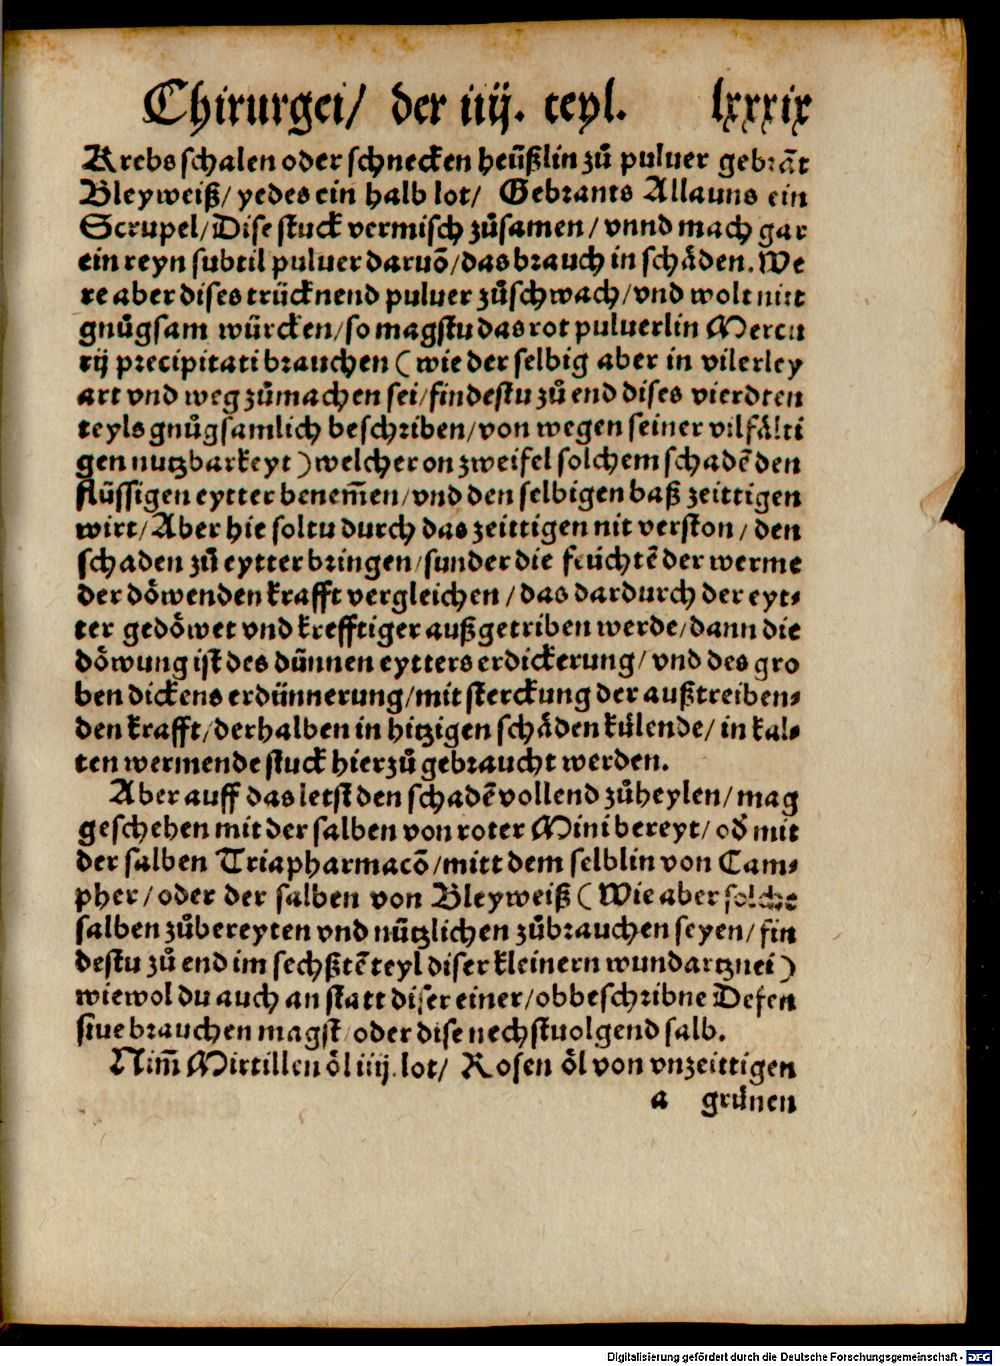 Chirurgei/ der iiij. teyl. lxxxix
Krebs schalen oder schnecken heüßlin zů puluer gebrāt
Bleyweiß/ yedes ein halb lot/ Gebrants Allauns ein
Scrupel/ Dise stuck vermisch zůsamen/ vnnd mach gar
ein reyn subtil puluer daruõ/ das brauch in schäden. We
re aber dises trücknend puluer zůschwach/ vnd wolt nitt
gnůgsam würcken/ so magstu das rot puluerlin Mercu
rij precipitati brauchen (wie der selbig aber in vilerley
art vnd weg zůmachen sei/ findestu zů end dises vierdten
teyls gnůgsamlich beschriben/ von wegen seiner vilfälti
gen nutzbarkeyt) welcher on zweifel solchem schadẽ den
flüssigen eytter benem̃en/ vnd den selbigen baß zeittigen
wirt/ Aber hie soltu durch das zeittigen nit verston/ den
schaden zů eytter bringen/ sunder die feüchtẽ der werme
der döwenden krafft vergleichen/ das dardurch der eyt-
ter gedöwet vnd krefftiger außgetriben werde/ dann die
döwung ist des dünnen eytters erdickerung/ vnd des gro
ben dickens erdünnerung/ mit sterckung der außtreiben-
den krafft/ derhalben in hitzigen schäden külende/ in kal-
ten wermende stuck hierzů gebraucht werden.
Aber auff das letst den schadẽ vollend zůheylen/ mag
geschehen mit der salben von roter Mini bereyt/ oď mit
der salben Triapharmacõ/ mitt dem selblin von Cam-
pher/ oder der salben von Bleyweiß (Wie aber solche
salben zůbereyten vnd nützlichen zůbrauchen seyen/ fin
destu zů end im sechßtẽ teyl diser kleinern wundartznei)
wiewol du auch an statt diser einer/ obbeschribne Defen
siue brauchen magst/ oder dise nechstuolgend salb.
Nim̃ Mirtillen öl iiij. lot/ Rosen öl von vnzeittigen
a grůnen
Digitalisierung gefördert durch die Deutsche Forschungsgemeinschaft - DFG